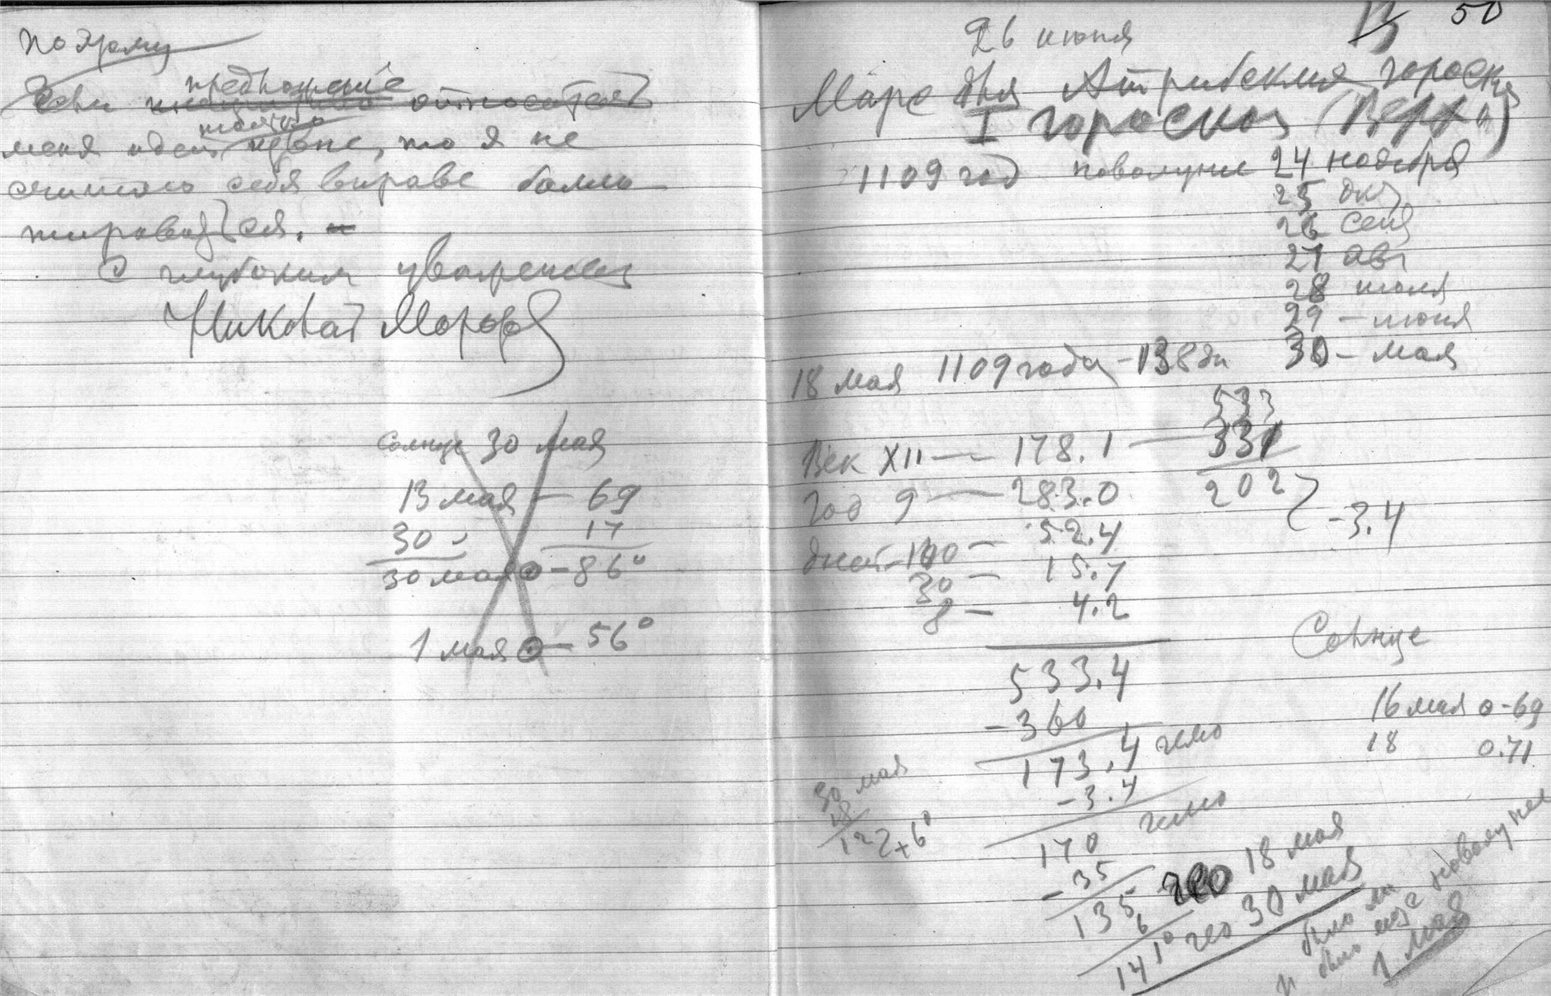 поэтому
предложение
Если относится
меня идет, то я не
считаю себя вправе балло
тироваться.
С глубоким уважением
Николай Морозов
Солнце 30 мая
13 мая — 69
30 - 17
30 мая ⊙ - 86°
1 мая ⊙ — 56°
13 50
26 июня
Марс для Атрибских гороск
I гороскоп (Верхн)
1109 год новолуние 24 ноября
25 окт
26 сент
27 авг
28 июля
29 - июня
18 мая 1109 года - 138 дн 30 - мая
533
Век XII — 178.1 — 331
Год 9 — 283.0 202 } - 3.4
дней - 100 — 52.4
30 — 15.7
8 — 4.2
Солнце
533.4
- 360
173.4 гелио
- 3.4
170 гелио
- 35
135 гео 18 мая
6
141° гео 30 мая
16 мая ⊙ - 69
18 0.71
30 мая
18
12 2+6°
было ли
и было новолуние
1 мая